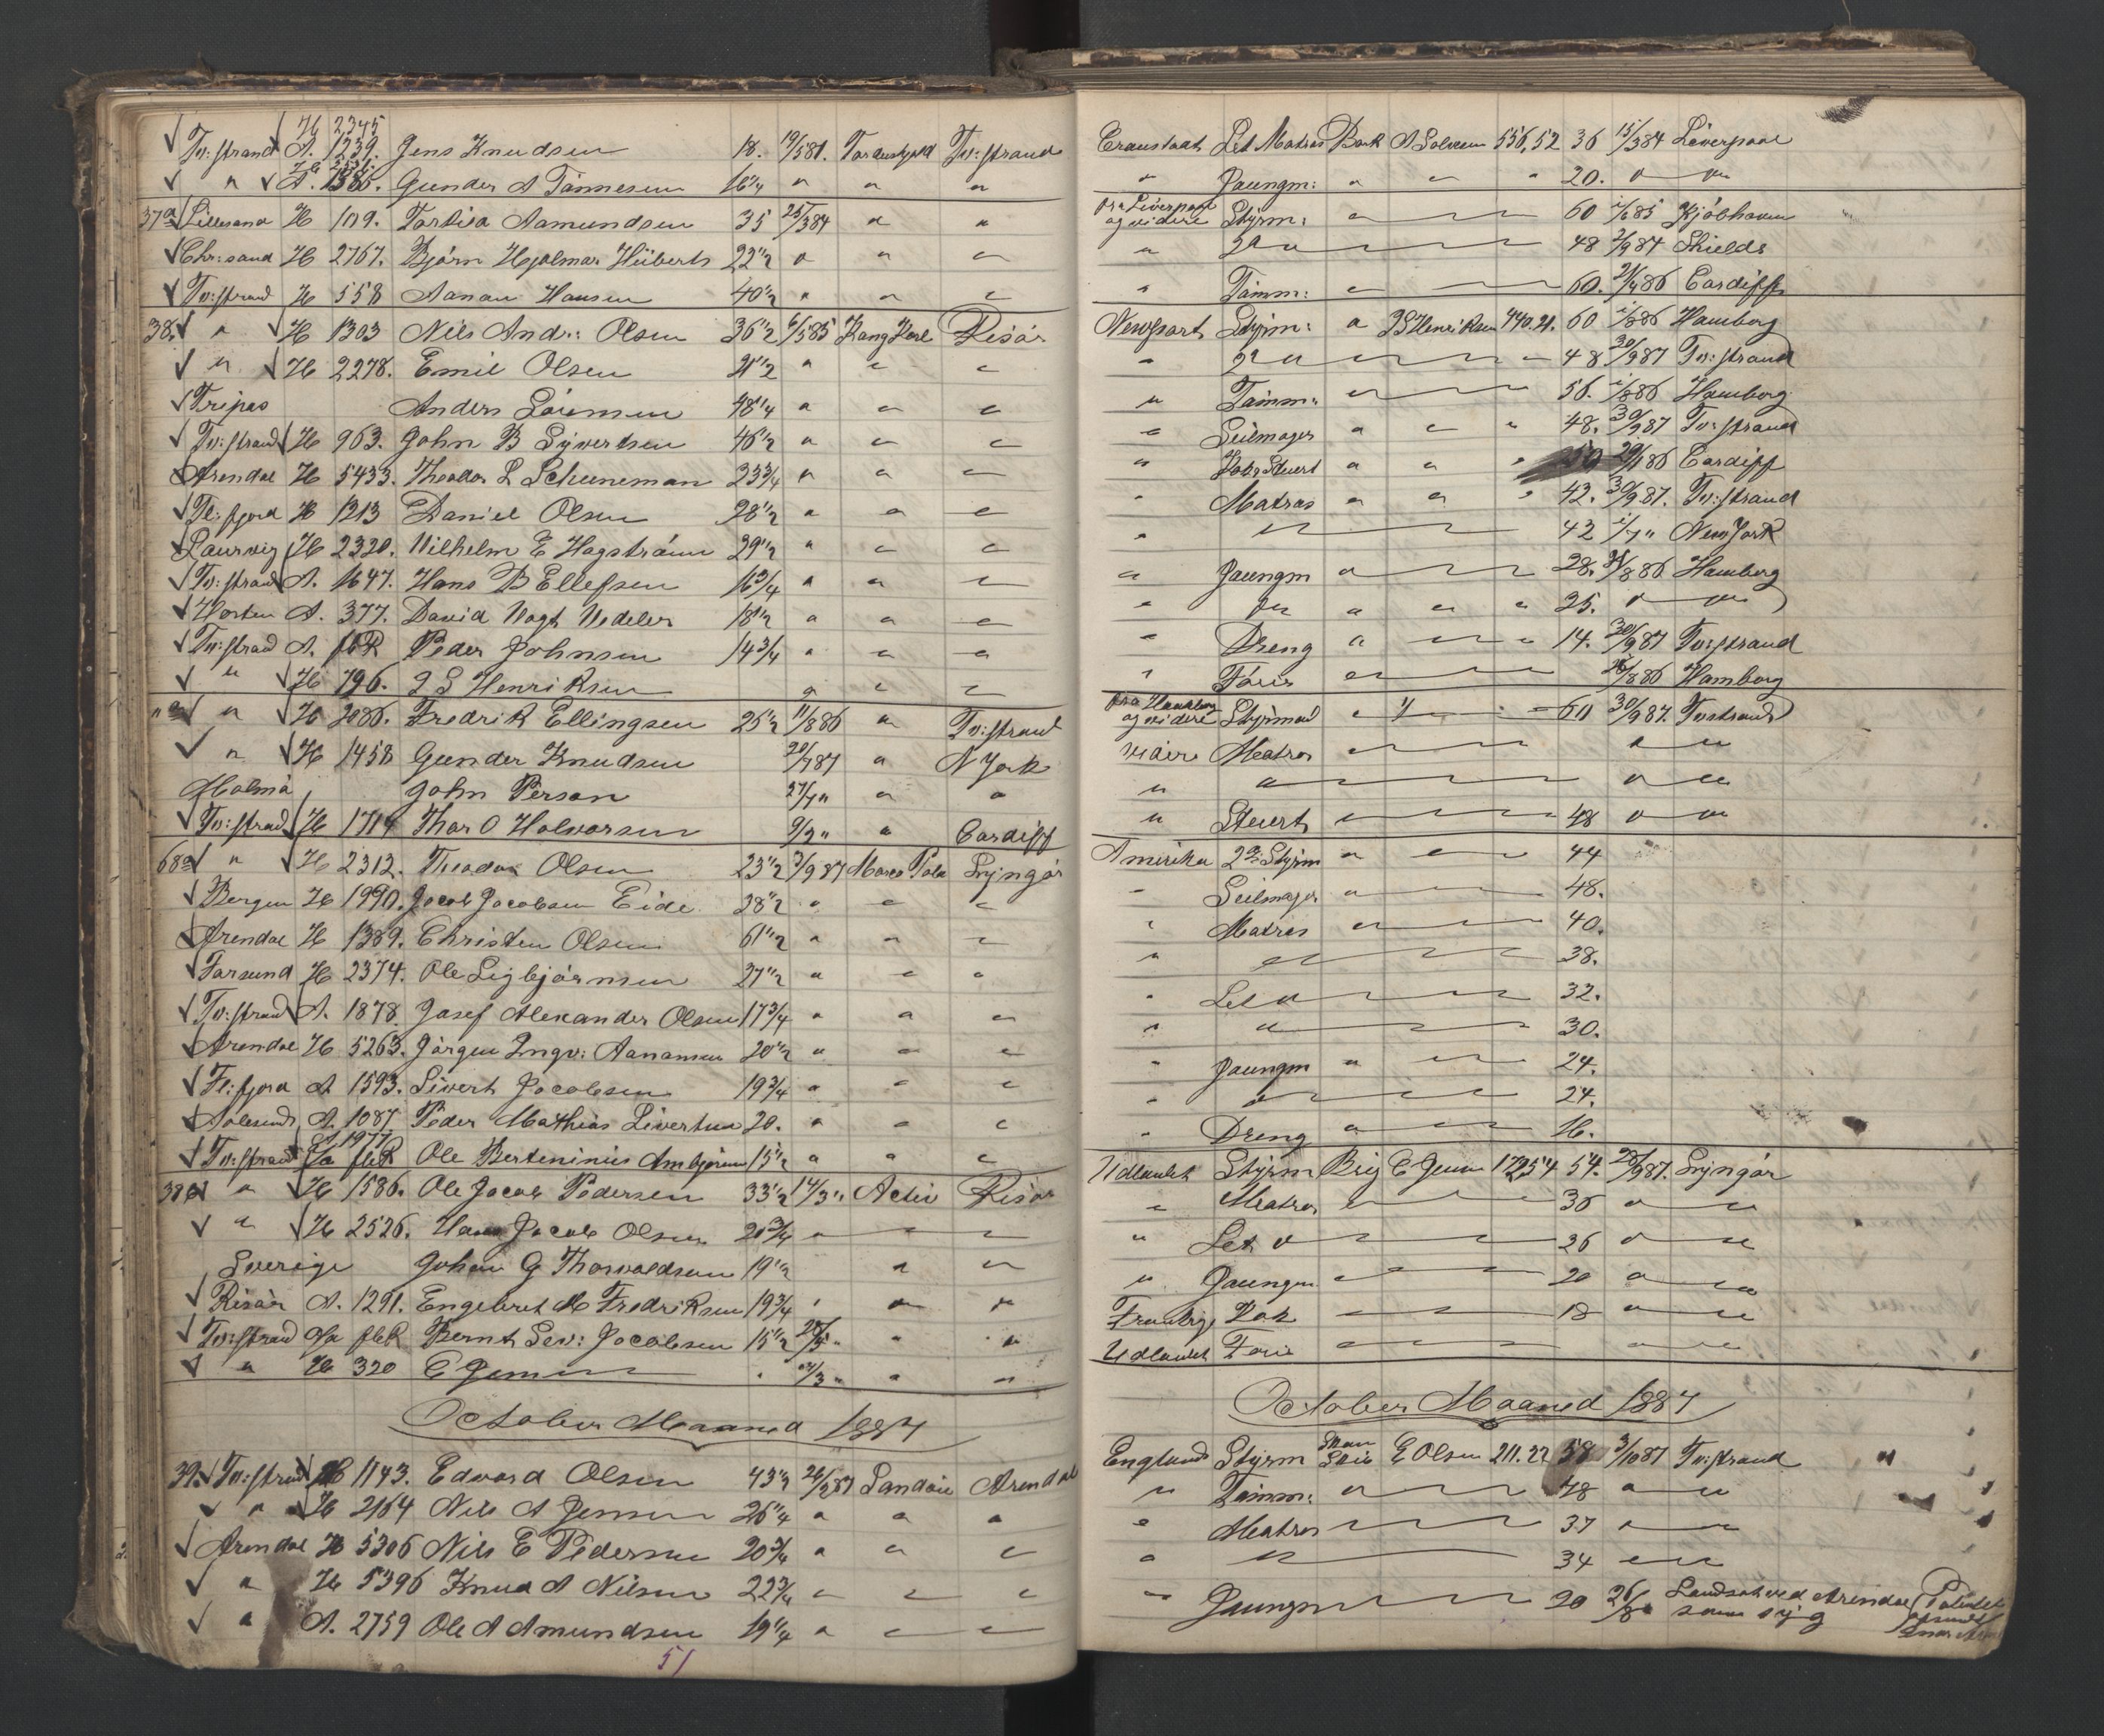 H 2345
Tv:strand A. 1239. Jens Knudsen 18. 19/5 81. Tordenskjold Tv:strand
" A. 1386. Gunder A Tånnesen 16 1/4 " " "
37a Lillesand H 109. Tarkild Aamundsen 35 25/3 84 " "
Chr:sand H 2767. Bjørn Hjalmar Hüberts 22 1/2 " " "
Tv:strand H 558 Aanan Hansen 40 1/2 " " "
38. " H 1303 Nils Andr: Olsen 36 1/2 6/5 85 Kong Karl Risör
" H 2278. Emil Olsen 21 1/2 " " "
Tripas Anders 48 1/4 " " "
Tv:strand H 963. John B Syvertsen 46 1/2 " " "
Arendal H 5433. Theodor L Schuneman 23 3/4 " " "
Fl:fjord H 1213 Daniel Olsen 28 1/2 " " "
Laurvig H 2320. Vilhelm E Hagstrøm 29 1/2 " " "
Tv:strand A. 1647. Hans B Ellefsen 16 3/4 " " "
Horten A. 377. David Vogt Vedeler 18 1/2 " " "
Tv:strand A. fbR Peder Johnsen 14 3/4 " " "
" H 796. J S Henriksen " " "
" H 2086. Fredrik Ellingsen 25 1/2 11/8 86 " Tv:strand
" H 1458 Gunder Knudsen 20/7 87 " N York
Malmø John Person 27/7 " " "
Tv:strad H 1714 Thor O Halvorsen 9/9 " " Cardiff
68a " H 2312. Theodor Olsen 23 1/2 7/9 87 Marco Polo Lyngör
Bergen H 1990. Jacob Jacobsen Eide 38 1/2 " " "
Arendal H 1389. Christen Olsen 61 1/2 " " "
Farsund H 2374. Ole Sigbjørnsen 27 1/2 " " "
Tv:strand A. 1878. Josef Alexander Olsen 17 3/4 " " "
Arendal H 5263. Jørgen Ingv: Aanansen 20 1/2 " " "
Fl:fjord A 1593. Sivert Jacobsen 19 3/4 " " "
Aalesund A. 1087 Peder Mathias Sivertsen 20. " " "
A 1977
Tv:strand fbR Ole Berteninius Ambjørnsen 15 1/2 " " "
38a " H 1586. Ole Jacob Pedersen 33 1/2 14/3 " Activ Risör
" H 2526. Hans Jacob Olsen 20 3/4 " " "
Sverige Johan G Thorvaldsen 19 1/2 " "
Risör A. 1291. Engebret M Fredriksen 19 3/4 " " "
Tv:strand fbR Bernt Sev: Jacobsen 15 1/2 " " "
" H 320 E Jensen " " "
October Maaned 1887
39. Tv:strand H 1143. Edvard Olsen 43 1/2 26/2 87 Landöie Arendal
" H 2164 Nils A Jensen 26 1/4 " " "
Arendal H 5306 Nils E Pedersen 20 3/4 " " "
" H 5396 Knud A Nilsen 22 3/4 " " "
" A. 2759 Ole A Amundsen 19 1/4 " " "
51
Cronstadt Let Matros Bark A Salvesen 556,52 36 15/3 84 Liverpool
" Jaungm: " " " 20. " "
fra Liverpool og videre Styrm: " 60 1/6 85 Kjöbhavn
" 2n " 48 2/9 84 Shields
" Tömm: " 60. 21/4 86 Cardiff
Newport Styrm: " J S Henriksen 440.21. 60 1/8 86 Hamborg
" 2n " 48 30/9 87 Tv:strand
" Tömm: " 56. 1/8 86 Hamborg
" Seilmager " " " 48. 30/9 87 Tv:strand
" Kok & Stuert " " " 50 29/1 86 Cardiff
" Matros " " " 42. 30/9 87. Tv:strand
" " 42 1/7 " New York
" Jaungm " 28. 31/8 86 Hamborg
" " " " " 25. " "
" Dreng " " " 14. 30/9 87 Tv:strand
" Förer " 16/8 86 Hamborg
fra Hamborg og videre Styrmand " 60 30/9 87. Tv:strand
videre Matros " " "
" " " "
" Stuert " 48 " "
Amerika 2den Styrm " 44
" Seilmager " 48.
" Matros " 40.
" " 38.
" Let " 32.
" " 30.
" Jaungm " 24.
" " 24.
" Dreng " 16.
Udlandet Styrm Brig E Jensen 54. 28/9 87. Lyngör
" Matros " 36 " "
" Let " 26 " "
" Jaungm " 20 " "
Kok " 18 " "
Udlandet Förer " " "
October Maaned 1887
England Styrm E Olsen 211.22 58 3/10 87 Tv:strand
" Tömm: " 48 " "
" Matros " 37 " "
" " 34 " "
" Jaungm " 20 26/8 " Landsat ved Arendal
som syg